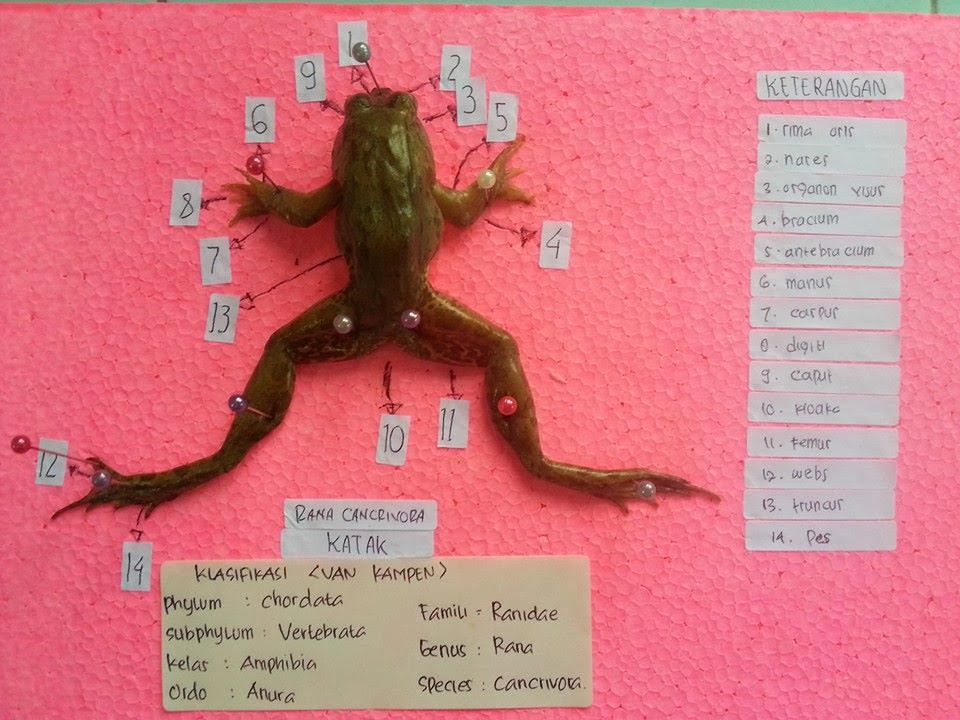 1
9
2
3
5
6
8
4
7
13
10
11
12
14
KETERANGAN
1. rima oris
2. nares
3. organon visus
4. bracium
5. antebracium
6. manus
7. carpus
8. digiti
9. caput
10. kloaka
11. femur
12. webs
13. truncus
14. Pes
RANA CANCRIVORA
KATAK
KLASIFIKASI <VAN KAMPEN>
Phylum : chordata
subphylum : Vertebrata
kelas : Amphibia
Ordo : Anura
Famili = Ranidae
Genus : Rana
Species : Cancrivora.